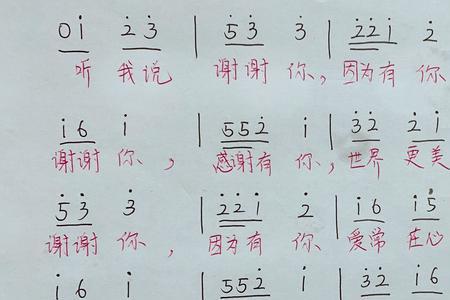 0i̇ 2̇3̇ | 5̇3̇ 3̇ | 2̇2̇i̇ 2̇
听 我说 谢谢 你，因为有 你
i̇6 i̇ | 552̇ i̇ | 3̇2̇ 2̇i̇
谢谢 你，感谢有 你，世界 更美
5̇3̇ 3̇ | 2̇2̇i̇ 2̇ | i̇6 i̇5̇
谢谢 你，因为有 你 爱常 在心
i̇6 i̇ | 552̇ i̇ | 3̇2̇ i̇6